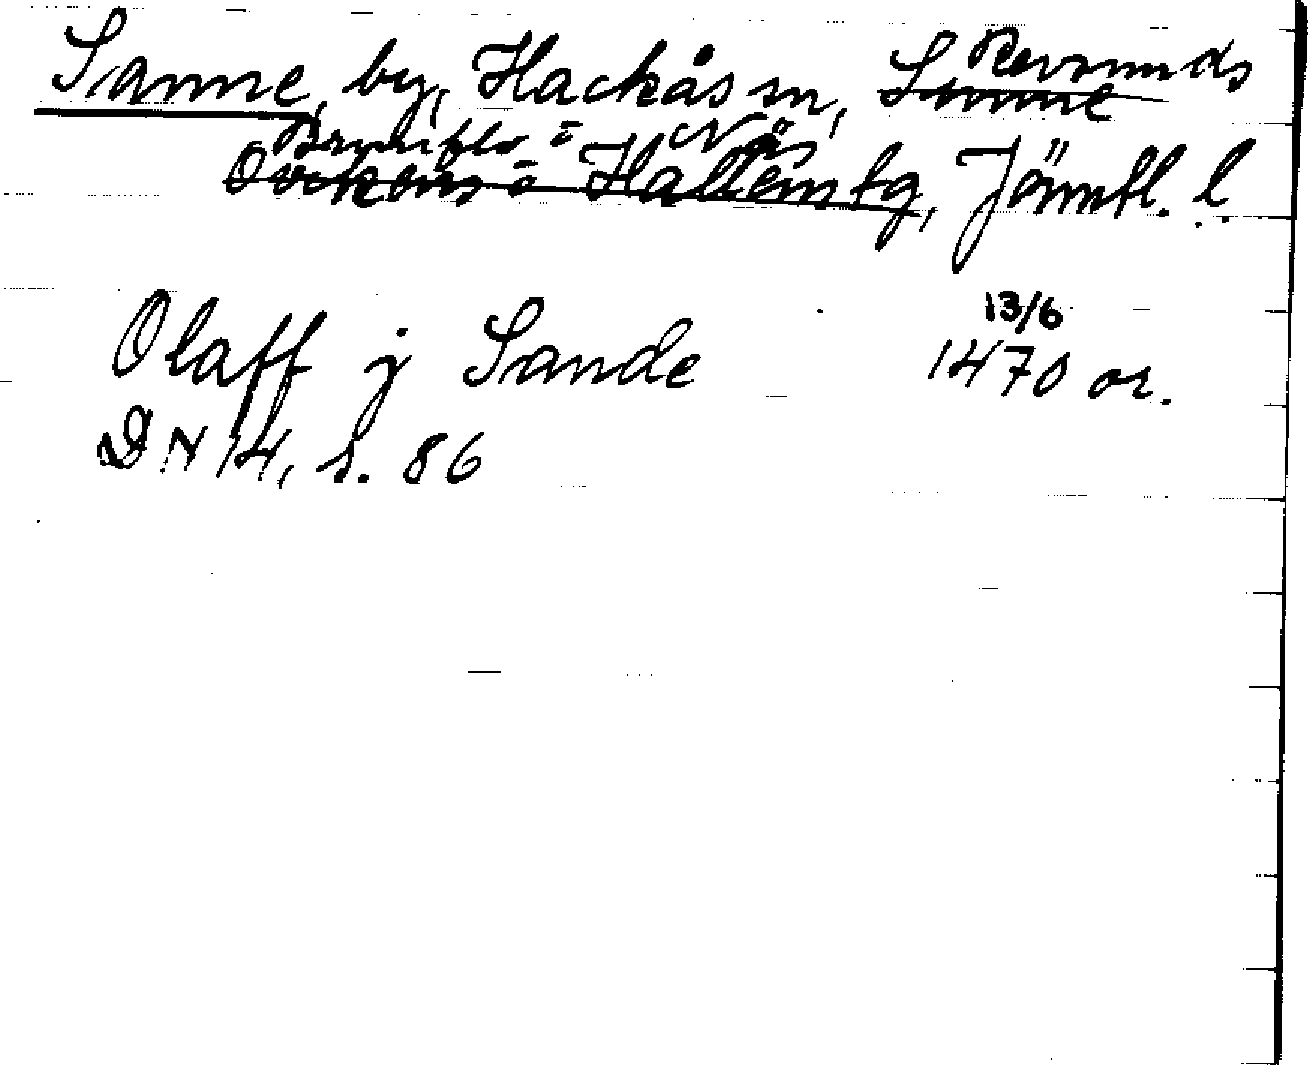 Sanne, by, Hackås sn, Sunne Revsunds
Brunflo o Näs
Ovikens o Hallens tg, Jämtl. l.
13/6
Olaff j Sande 1470 or.
DN 14, s. 86